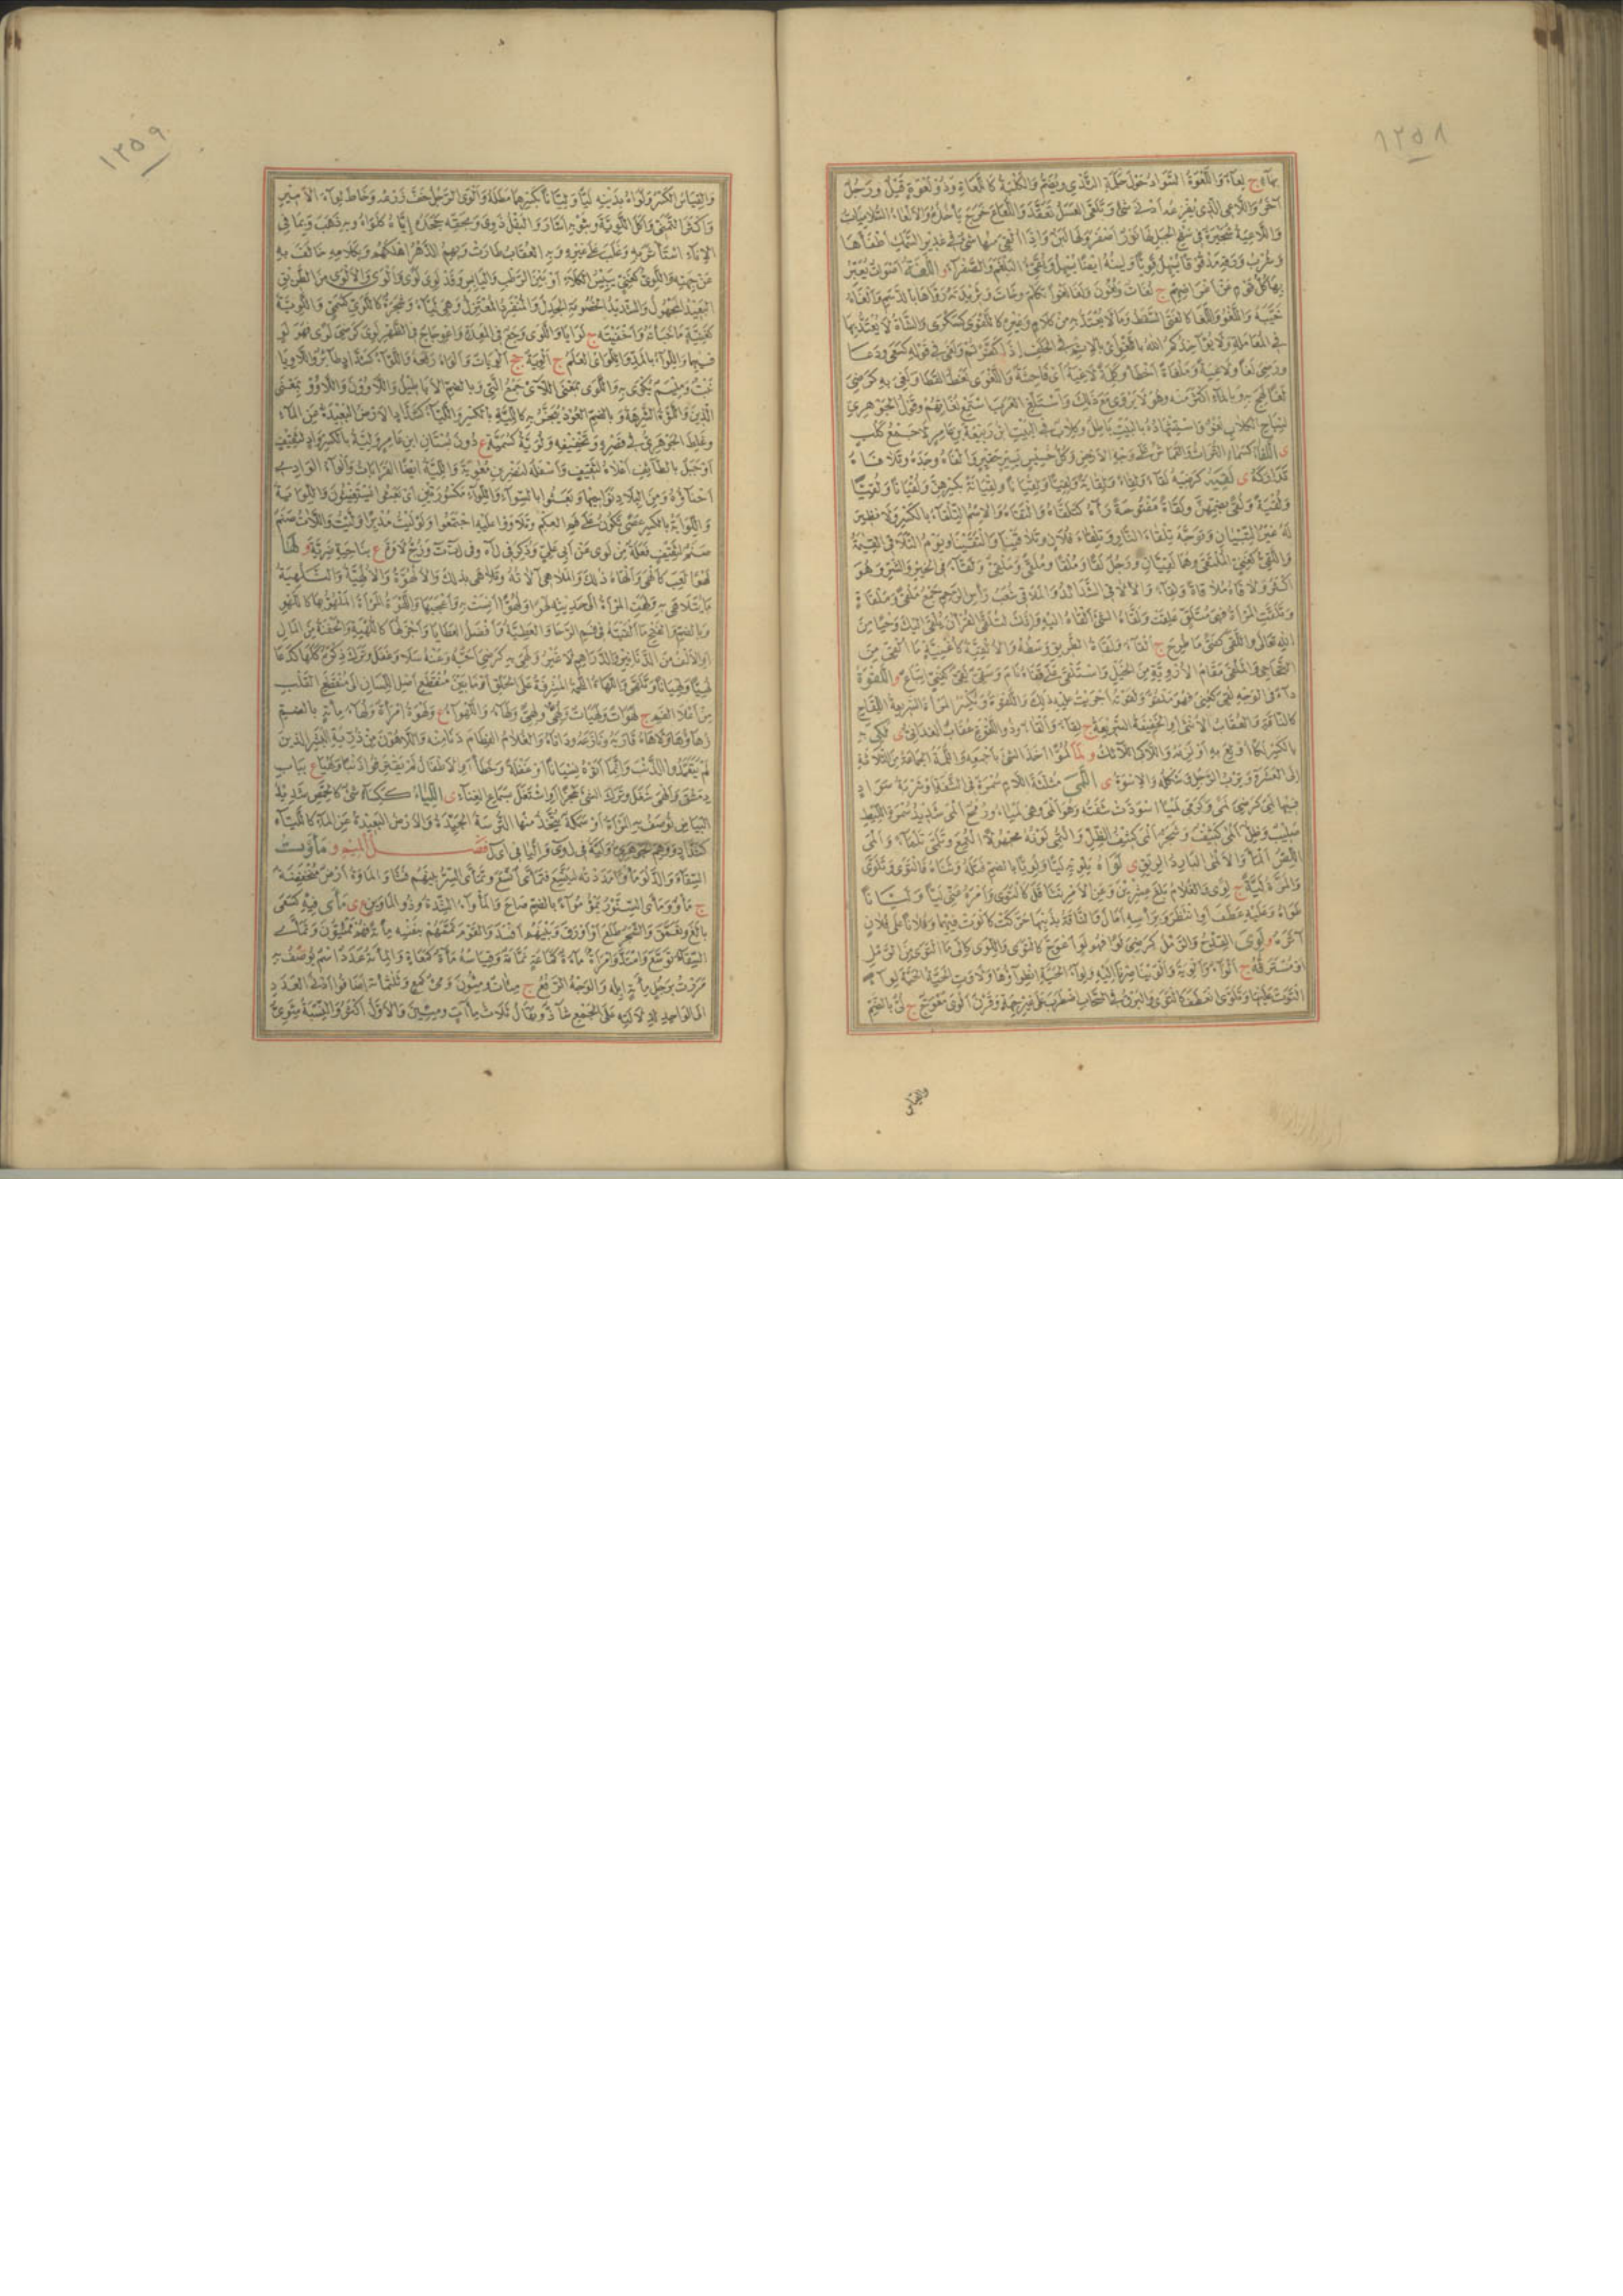 ١٢٥٨
بهاء ج لعاء واللعوة السواد حول حلمة الثدي ويضم والكلبة كاللعاة وذو لعوة قيل ورجل
آخر واللاعي الذي يفزعه أدنى شئ وتلعى العسل تعقد واللعاع خرج يأخذه والألعاء السلاميات
واللاعية شجيرة في سفح الجبل لها نور أصفر ولها لبن وإذا ألقي منها شئ في غدير السمك أطفأها
بها كل قوم عن أغراضهم ج لغات ولغون ولغا لغوا تكلم وخاب وثريدته رواها بالدسم وألغاه
خيبه واللغو واللغا كالفتى السقط وما لا يعتد به من كلام وغيره كاللغوى كسكرى والشاة لا يعتد بها
في المعاملة ولا يؤاخذكم الله باللغو أي بالإثم في الحلف إذا كفرتم ولغى في قوله كسعى ودعا
ورضي لغا ولاغية وملغاة أخطأ وكلمة لاغية أي فاحشة واللغوى لغط القطا ولغي به كرضي
لغا لهج به وبالماء أكثر منه وهو لا يروى مع ذلك واستلغ العرب استمع لغاتهم وقول الجوهري
لنباح الكلاب لغو واستشهاده بالبيت باطل وكلاب في البيت ابن ربيعة بن عامر لا جمع كلب
ى اللفاء كسماء التراب والقماش على وجه الأرض وكل خسيس يسير حقير وألفاه وجده وتلافاه
تداركه ى لقيه كرضيه لقاء ولقاءة ولقاية ولقيا ولقيانا ولقيانة بكسرهن ولقيانا ولقيا
ولقية ولقى بضمهن ولقاءة مفتوحة رآه كتلقاه والتقاه والاسم التلقاء بالكسر ولا نظير
له غير التبيان وتوجه تلقاء النار وتلقاء فلان وتلاقينا والتقينا ويوم التلاقي القيمة
واللقي كغني الملتقى وهما لقيان ورجل لقى وملقى وملقي ولقاء في الخير والشر وهو
أكثر ولاقاه ملاقاة ولقاء والألاقي الشدائد والملاقي شعب رأس الرحم جمع ملقى وملقاة
وتلقت المرأة فهي متلق علقت ولقاه الشئ ألقاه إليه وإنك لتلقى القرآن يلقى إليك وحيا من
الله تعالى واللقى كفتى ما طرح ج ألقاء ولقاة الطريق وسطه والألقية كأغنية ما ألقي من
التحاجي والملقى مقام الأروية من الجبل واستلقى على قفاه نام وشقي لقي كغني إتباع و اللقوة
داء في الوجه لقي كعني فهو ملقو ولقوته أجريت عليه ذلك واللقوة وتكسر المرأة السريعة اللقاح
كالناقة والعقاب الأنثى أو الخفيفة السريعة ج لقاء وألقاء وذو اللقوة عقاب الغداني ى لكي به
بالكسر لكا أولع به أو لزمه واللاكي اللائك و لما لموا أخذ الشئ بأجمعه واللمة الجماعة من الثلاثة
إلى العشرة وترب الرجل وشكله والأسوة ى اللمى مثلثة اللام سمرة في الشفة أو شربة سواد
فيها لمي كرضي لمى وكرمى لميا اسودت شفته وهو ألمى وهي لمياء ورمح ألمى شديد سمرة الليط
صليب وظل ألمى كثيف وشجر ألمى كثيف الظل والتمي لونه مجهولا التمع وتلمى تلقاء وألمى
اللص ألمأ والألمى البارد الريق ى لواه يلويه ليا ولويا بالضم فتله وثناه فالتوى وتلوى
والمرة لية ج لوى والغلام بلغ عشرين وعن الأمر تثاقل كالتوى وأمره عني ليا وليانا
طواه وعليه عطف أو انتظر وبرأسه أمال والناقة بذنبها حركت كألوت فيهما وفلانا على فلان
آثره و لوي القدح والرمل كرضي لوى فهو لو اعوج كالتوى واللوى كإلى ما التوى من الرمل
أو مسترقه ج ألواء وألوية وألوينا صرنا إليه ولواء الحية انطواؤها ولاوت الحية الحية لواء
التوت عليها وتلوى انعطف كالتوى والبرق في السحاب اضطرب على غير جهة وقرن ألوى معوج ج لي بالضم
والقياس
١٢٥٩
والقياس الكسر ولواه بدينه ليا وليانا بكسرهما مطله وألوى الرجل خف زرعه وخاط لواء الأمير
وأكثر التمني وأكل اللوية وبثوبه أشار والبقل ذوى وبحقه جحده إياه كلواه وبه ذهب وبما في
الإناء استأثر به وغلب على غيره وبه العقاب طارت وبهم الدهر أهلكهم وبكلامه خالف به
عن جهته واللوي كغني يبيس الكلاء أو بين الرطب واليابس وقد لوي لوى وألوى والألوى من الطريق
البعيد المجهول والشديد الخصومة الجدل والمنفرد المعتزل وهي لياء وشجرة كاللوي كسمي واللوية
كغنية ما خبأته وأخفيته ج لوايا واللوى وجع في المعدة واعوجاج في الظهر لوي كرضي لوى فهو لو
فيهما واللواء بالمد واللواي العلم ج ألوية جج ألويات وألواه رفعه واللواء كشداد طائر واللاويا
نبت وميسم يكوى به واللوى بمعنى اللاتي جمع التي وبالضم الأباطيل واللاؤون واللاؤو بمعنى
الذين واللوة الشرهة وبالضم العود يتبخر به كاللية بالكسر واللياء كشداد الأرض البعيدة من الماء
وغلط الجوهري في قصره وتخفيفه ولوية كسمية ع دون بستان ابن عامر ولية بالكسر واد لثقيف
أو جبل بالطائف أعلاه لثقيف وأسفله لنصر بن معوية واللية أيضا القرابات وألواء الوادي
أحناؤه ومن البلاد نواحيها وبعثوا بالسواء واللواء مكسورتين أي بعثوا يستغيثون واللواية
واللواية بالكسر عصى تكون على فم العكم وتلاووا عليه اجتمعوا ولوليت مدبرا وليت واللات صنم
صنم لثقيف فعلة من لوى عن أبي علي وذكر في ل أ ه وفي ل ت ت وزج لاوة ع بناحية ضرية و لها
لهوا لعب كالتهى وألهاه ذلك والملاهي آلاته وتلاهى بذلك والألهوة والألهية والتلهية
ما يتلاهى به ولهت المرأة إلى حديثه لهوا ولهوا أنست به وأعجبها واللهوة المرأة الملهو بها كاللهو
وبالضم والفتح ما ألقيته في فم الرحا والعطية أو أفضل العطايا وأجزلها كاللهية والحفنة من المال
أو الألف من الدنانير والدراهم لا غير ولهي به كرضي أحبه وعنه سلا وغفل وترك ذكره كلها كدعا
لهيا ولهيانا وتلهى واللهاة اللحمة المشرفة على الحلق أو ما بين منقطع أصل اللسان إلى منقطع القلب
من أعلى الفم ج لهوات ولهيات ولهي ولهي ولهاء واللهواء ع ولهوة امرأة ولهاء مائة بالضم
زهاؤها ولاهاه قاربه ونازعه وداناه والغلام الفطام دنا منه واللاهون من ذرية البشر الذين
لم يتعمدوا الذنب وإنما أتوه نسيانا أو غفلة وخطأ أو الأطفال لم يقترفوا ذنبا ولهيا ع بباب
دمشق وألهى شغل وترك الشئ عجزا أو اشتغل بسماع الغناء ى اللياء ككساء شئ كالحمص شديد
البياض توصف به المرأة أو سمكة يتخذ منها الترسة الجيدة والأرض البعيدة عن الماء كاللياء
كشداد ووهم الجوهري ولية في لوى وإليا في أيل فصل الميم و مأوت
السقاء والدلو مأوا مددته ليتسع فتمأى اتسع وتمأى الشر بينهم فشا والمأوة أرض منخفضة
ج مأو ومأى السنور يمؤ مؤاء بالضم صاع والمأواء الشدة وذو المأوين ع ى مأى فيه كسعى
بالغ وتعمق والشجر طلع أو أورق وبينهم أفسد والقوم تممهم بنفسه مائة فهم ممئيون وتمأى
السقاء توسع وامتد وامرأة مآءة كتماعة نمامة وقياسه مآة كمعاة والمائة عدد اسم يوصف به
مررت برجل مائة إبله والوجه الرفع ج مئات ومئون ومئ كمع وثلثمائة أضافوا أدنى العدد
إلى الواحد لدلالته على الجمع شاذ ويقال ثلاث مئات ومئين والأول أكثر والنسبة مئوي